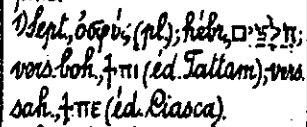 1) Sept., ὀσφύς (pl.); hébr., חֲלָצַיִם;
vers. boh., ϯπι (éd. Tattam); vers.
sah., ϯπε (éd. Ciasca).